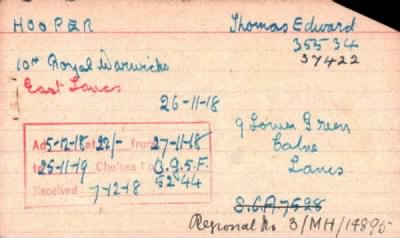 HOOPER Thomas Edward
35534
37422
10th Royal Warwicks
East Lancs
26-11-18
9 Lower Green
Ealne
Lancs
Ad 5-12-18 at 22/- from 27-11-18
to 25-11-19 Chelsea O.G.S.F.
Received 7-12-18 5244
S.C.A 7528
Regional No 3/MH/14895